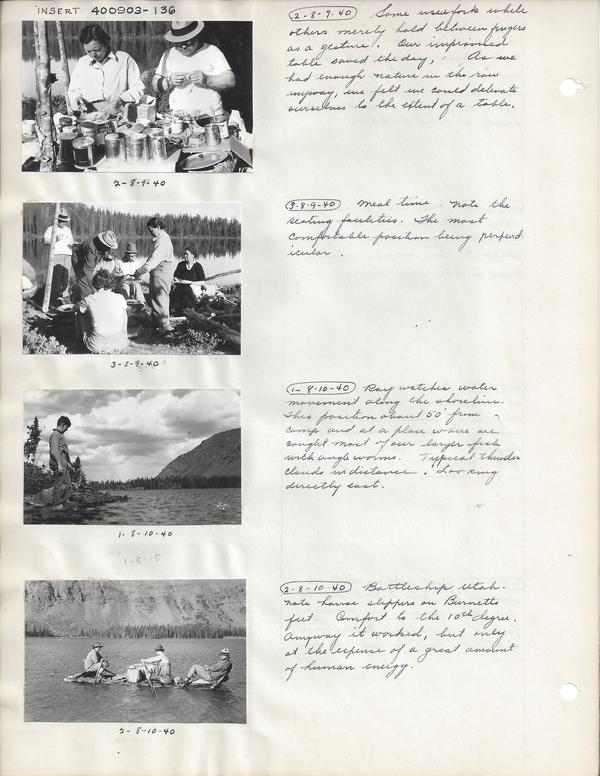 INSERT 400903-136
2-8-9-40
(2-8-9-40) Some use forks while
others merely hold between fingers
as a gesture. Our improvised
table saved the day, As we
had enough nature in the raw
anyway, we felt we could elevate
ourselves to the extent of a table.
3-8-9-40
(3-8-9-40) Meal time. Note the
seating facilities. The most
comfortable position being perpend-
icular.
1-8-10-40
1-8-10
(1-8-10-40) Ray watches water
movement along the shoreline.
This position about 50' from
camp and at a place where we
caught most of our larger fish
with angle worms. Typical thunder
clouds in distance. Looking
directly east.
2-8-10-40
(2-8-10-40) Battleship Utah.
Note house slippers on Burnetts
feet. Comfort to the 10th degree.
Anyway it worked, but only
at the expense of a great amount
of human energy.